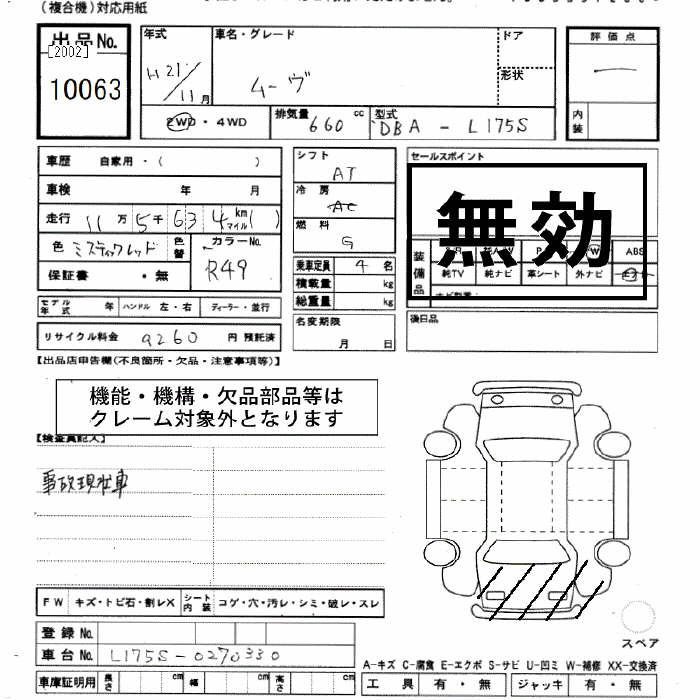 (複合機)対応用紙
出品No.
[2002]
10063
年式
H21/11月
車名・グレード
ムーヴ
ドア
形状
評価点
一
内装
2WD・4WD
排気量 660 cc
型式 DBA - L175S
車歴 自家用・( )
車検 年 月
走行 11万5千634km( )
マイル
色 ミスティックレッド
色替
カラーNo.
R49
保証書 ・無
モデル年式 年 ハンドル 左・右 ディーラー・並行
リサイクル料金 9260 円 預託済
シフト
AT
冷房
AC
燃料
G
乗車定員 4 名
積載量 kg
総重量 kg
名変期限
月 日
セールスポイント
無効
装備品
ABS
純TV 純ナビ 革シート 外ナビ
後日品
【出品店申告欄(不良箇所・欠品・注意事項等)】
機能・機構・欠品部品等は
クレーム対象外となります
【検査員記入】
事故現状車
FW キズ・トビ石・割レX シート内装 コゲ・穴・汚レ・シミ・破レ・スレ
登録No.
車台No. L175S-0270330
車庫証明用 長さ cm 幅 cm 高さ cm
スペア
A-キズ C-腐食 E-エクボ S-サビ U-凹ミ W-補修 XX-交換済
工具 有・無 ジャッキ 有・無